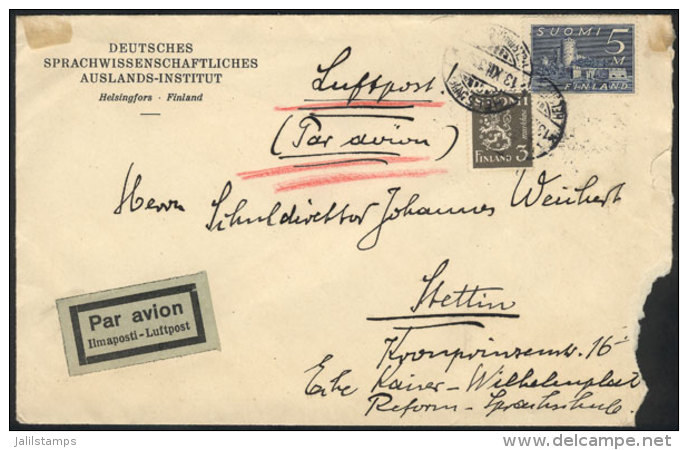 DEUTSCHES
SPRACHWISSENSCHAFTLICHES
AUSLANDS-INSTITUT
Helsingfors · Finland
SUOMI 5
M
FINLAND
Luftpost
(Par avion)
FINLAND 3
Herrn Schuldirektor Johannes Weichert
Stettin
Kronprinzenstr. 16
Ecke Kaiser-Wilhelmplatz
Reform-Sprachschule.
Par avion
Ilmaposti-Luftpost
jalilstamps
delcampe.net